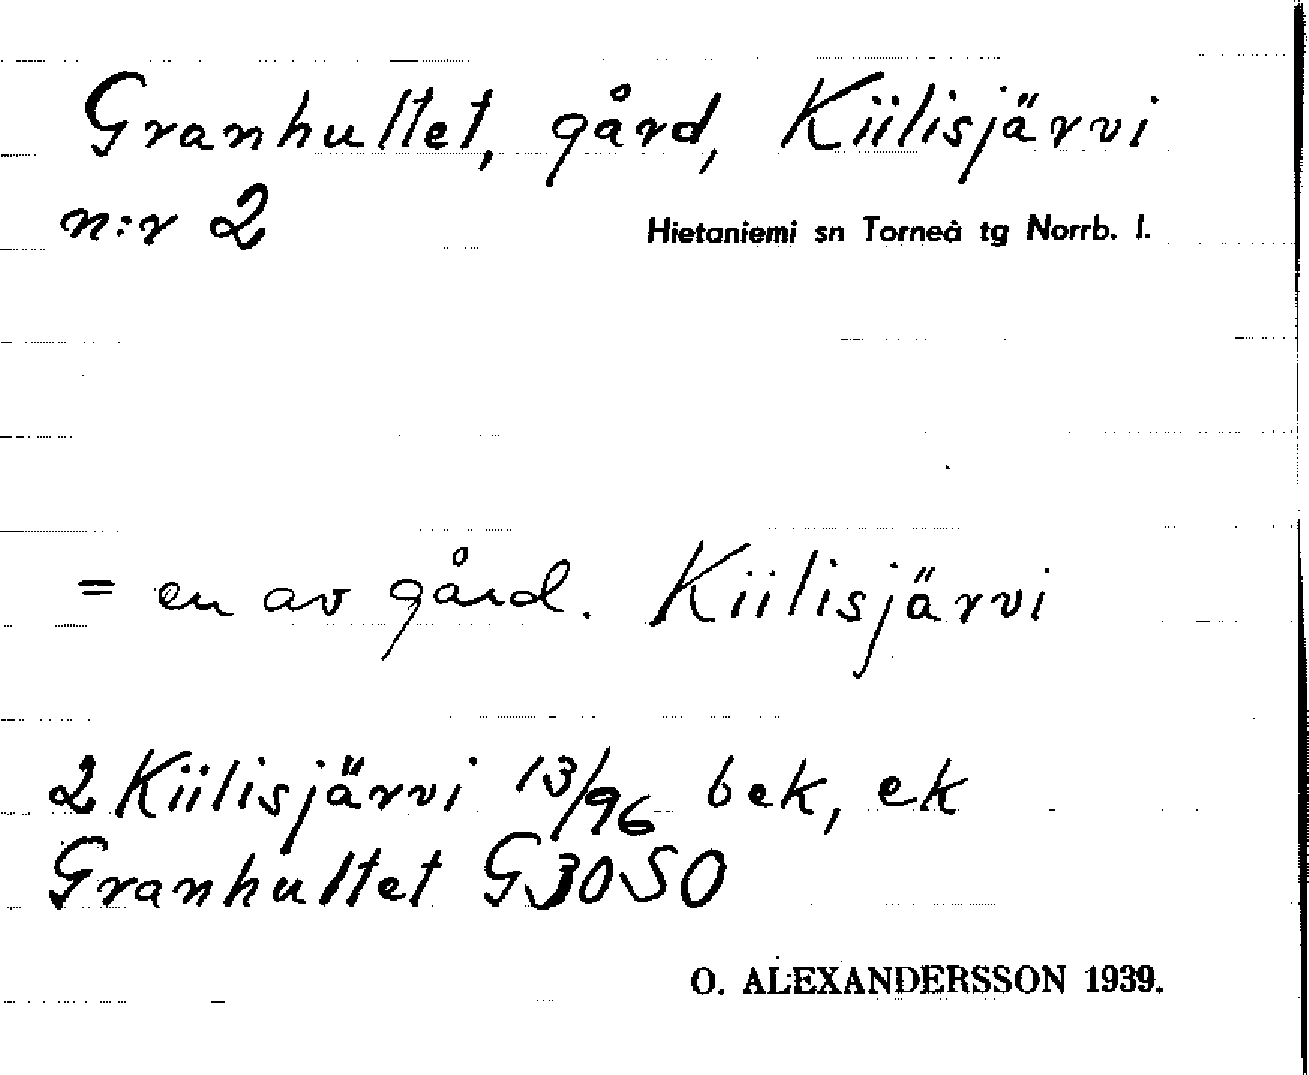 Granhultet, gård, Kiilisjärvi
n:r 2 Hietaniemi sn Torneå tg Norrb. l.
= en av gård. Kiilisjärvi
2 Kiilisjärvi 13/96 bek, ek
Granhultet G30SO
O. ALEXANDERSSON 1939.